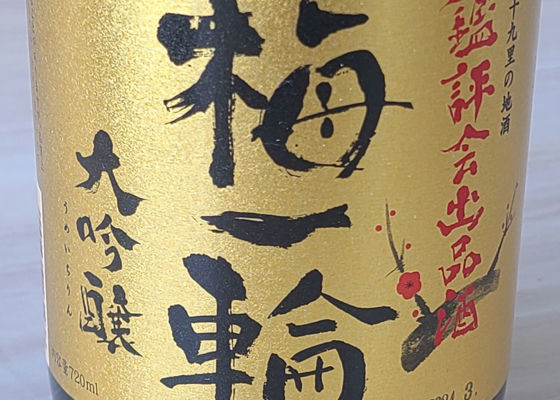 十九里の地酒
鑑評会出品酒
梅一輪
うめいちりん
大吟醸
内容量720ml
3.